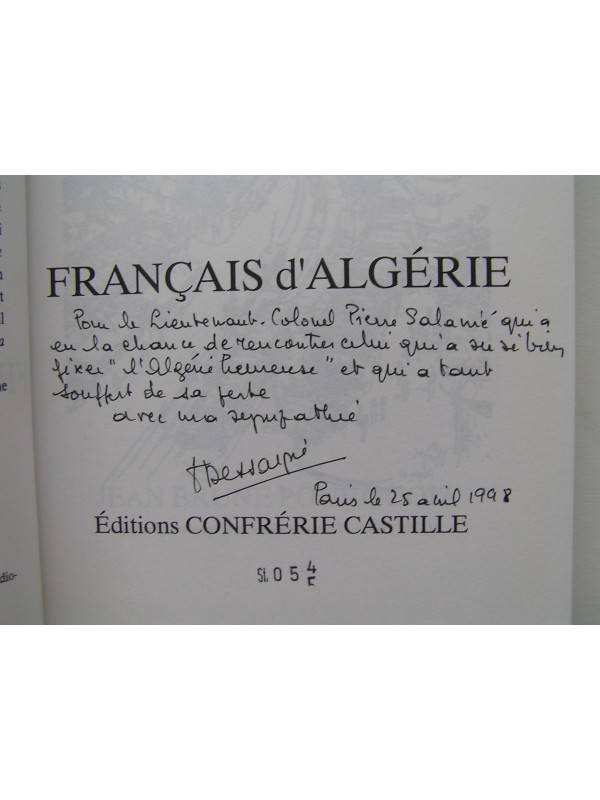 FRANÇAIS d'ALGÉRIE
Pour le Lieutenant-Colonel Pierre Salamié qui a
eu la chance de rencontrer celui qui a su si bien
fixer "l'Algérie heureuse" et qui a tant
souffert de sa perte
avec ma sympathie
Dessaigne
Paris le 25 avril 1998
JEAN BRUNE
Éditions CONFRÉRIE CASTILLE
St. 054
dio-